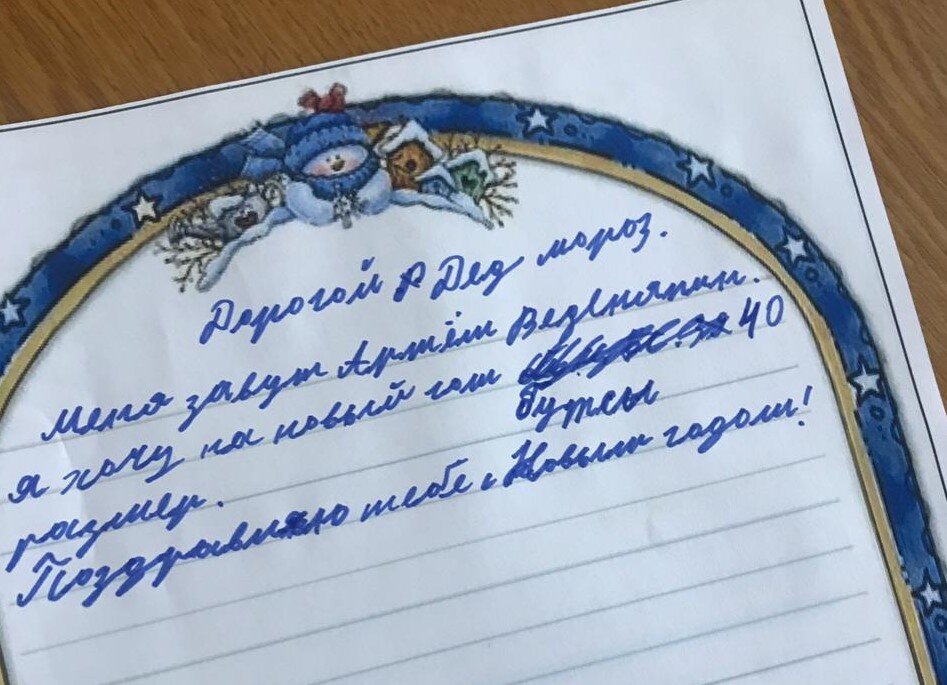 Дорогой Дед мороз.
Меня завут Артём Веденяпин.
я хочу на новый гот 40
бутсы
размер.
Поздравляю тебе с Новым годом!